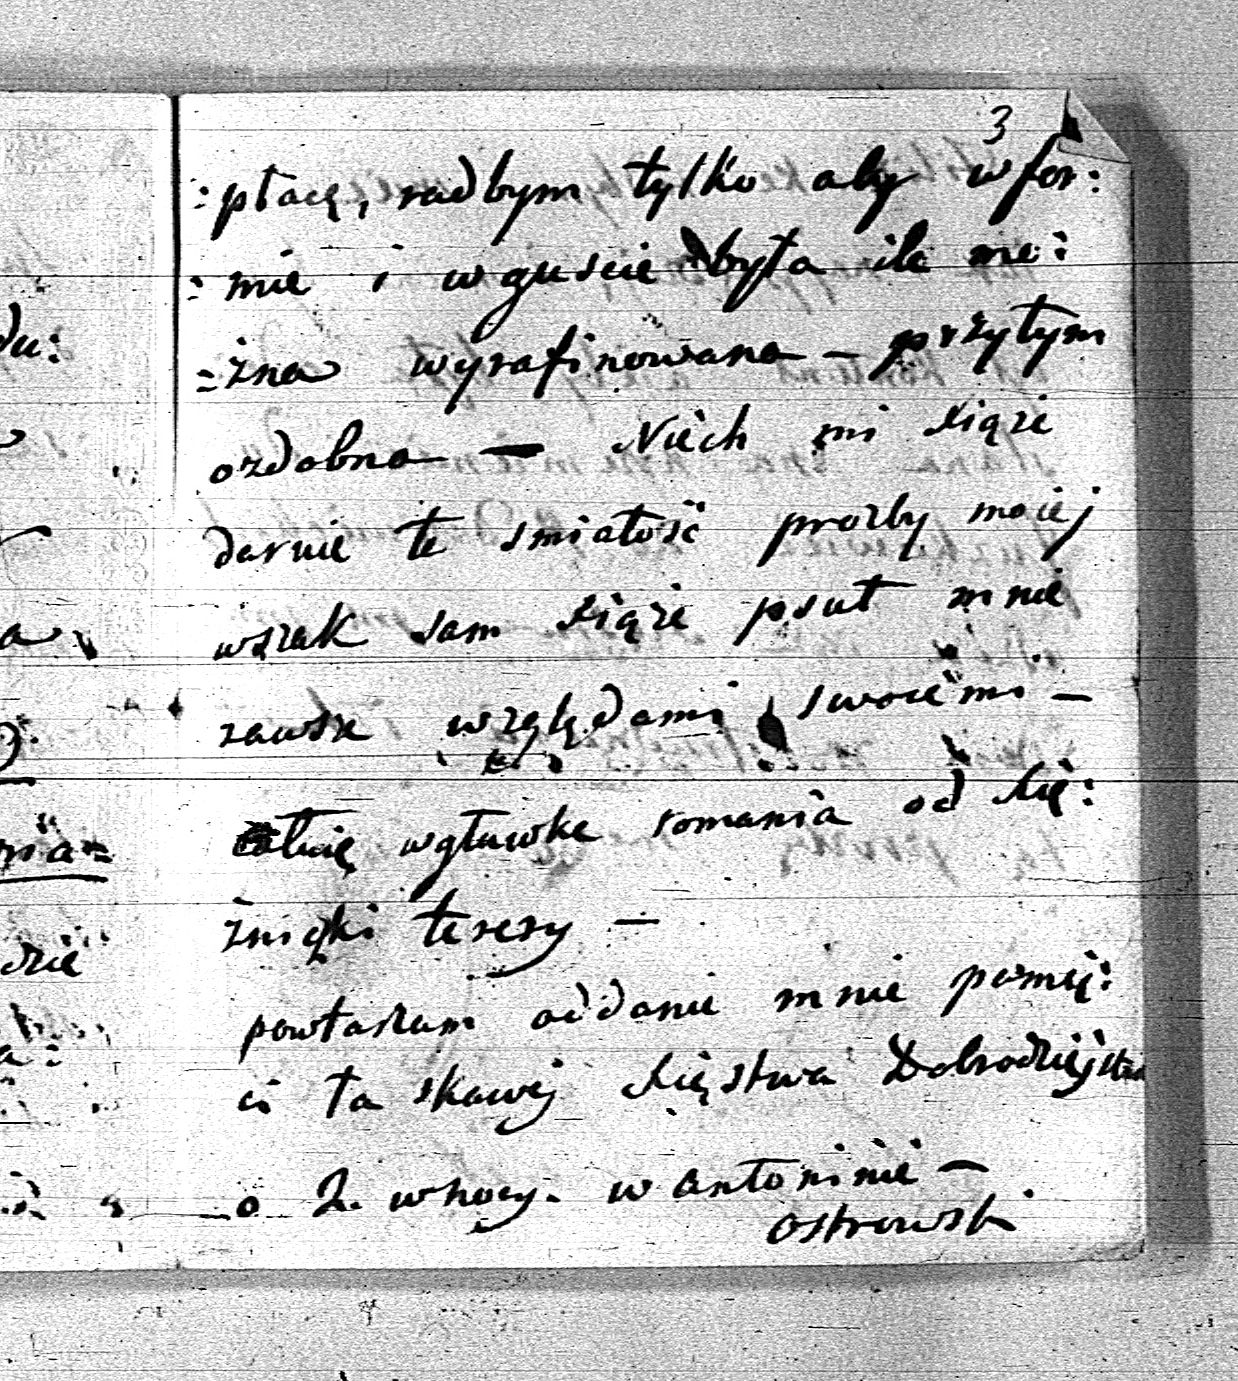 3
:płacę, radbym tylko aby w for:
:mie i w guscie była ile mo:
=żna wyrafinowana — przytym
ozdobna — Niech mi Xiąże
daruie te smiałość prozby moiej
wszak sam Xiąże psuł mnie
zawsze względami swoiemi —
w główke romania od Xię:
żniczki teresy —
powtarzam oddanie mnie pamię:
ci łaskawej Xięstwa Dobrodziejstwa
o 2. w nocy. w antoninie —
Ostrowski